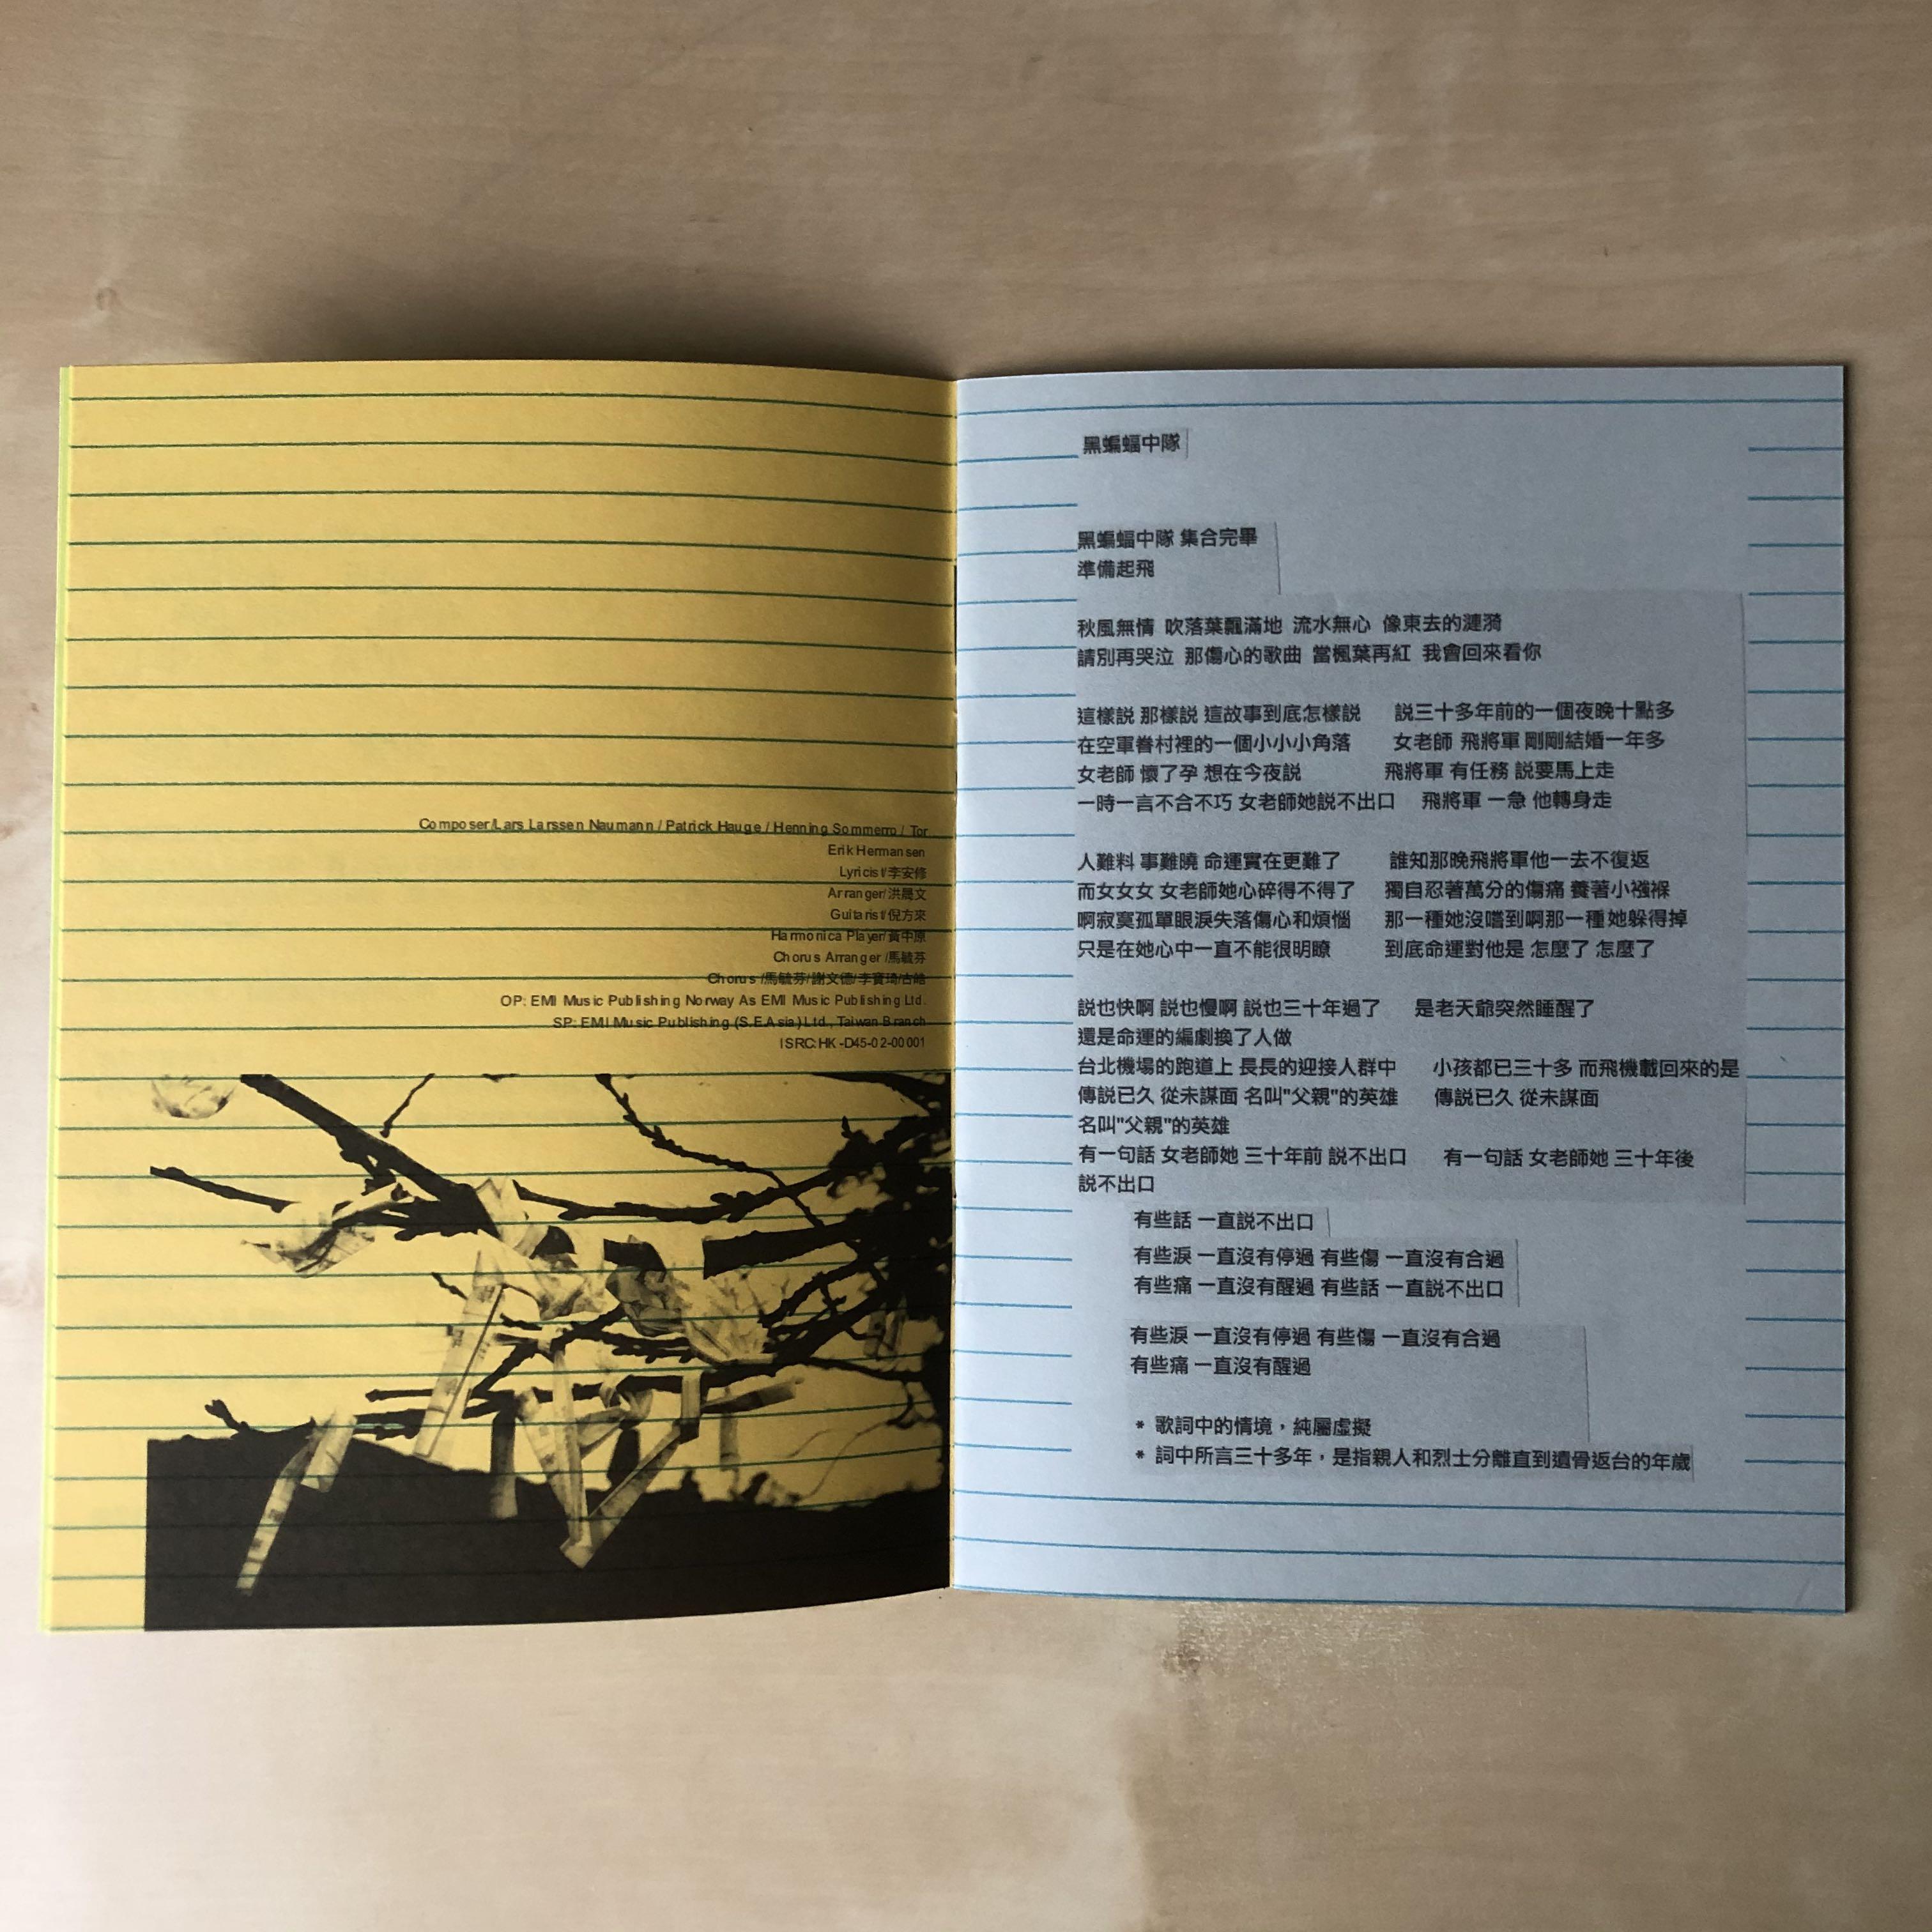 Composer/Lars Larssen Naumann / Patrick Hauge / Henning Sommerro / Tor
Erik Hermansen
Lyricist/李安修
Arranger/洪晟文
Guitarist/倪方來
Harmonica Player/黃中原
Chorus Arranger /馬毓芬
Chorus /馬毓芬/謝文德/李寶琦/古皓
OP: EMI Music Publishing Norway As EMI Music Publishing Ltd.
SP: EMI Music Publishing (S.E.Asia) Ltd., Taiwan Branch
ISRC:HK-D45-02-00001
黑蝙蝠中隊
黑蝙蝠中隊 集合完畢
準備起飛
秋風無情 吹落葉飄滿地 流水無心 像東去的漣漪
請別再哭泣 那傷心的歌曲 當楓葉再紅 我會回來看你
這樣說 那樣說 這故事到底怎樣說 說三十多年前的一個夜晚十點多
在空軍眷村裡的一個小小小角落 女老師 飛將軍 剛剛結婚一年多
女老師 懷了孕 想在今夜說 飛將軍 有任務 說要馬上走
一時一言不合不巧 女老師她說不出口 飛將軍 一急 他轉身走
人難料 事難曉 命運實在更難了 誰知那晚飛將軍他一去不復返
而女女女 女老師她心碎得不得了 獨自忍著萬分的傷痛 養著小襁褓
啊寂寞孤單眼淚失落傷心和煩惱 那一種她沒嚐到啊那一種她躲得掉
只是在她心中一直不能很明瞭 到底命運對他是 怎麼了 怎麼了
說也快啊 說也慢啊 說也三十年過了 是老天爺突然睡醒了
還是命運的編劇換了人做
台北機場的跑道上 長長的迎接人群中 小孩都已三十多 而飛機載回來的是
傳說已久 從未謀面 名叫"父親"的英雄 傳說已久 從未謀面
名叫"父親"的英雄
有一句話 女老師她 三十年前 說不出口 有一句話 女老師她 三十年後
說不出口
有些話 一直說不出口
有些淚 一直沒有停過 有些傷 一直沒有合過
有些痛 一直沒有醒過 有些話 一直說不出口
有些淚 一直沒有停過 有些傷 一直沒有合過
有些痛 一直沒有醒過
* 歌詞中的情境，純屬虛擬
* 詞中所言三十多年，是指親人和烈士分離直到遺骨返台的年歲